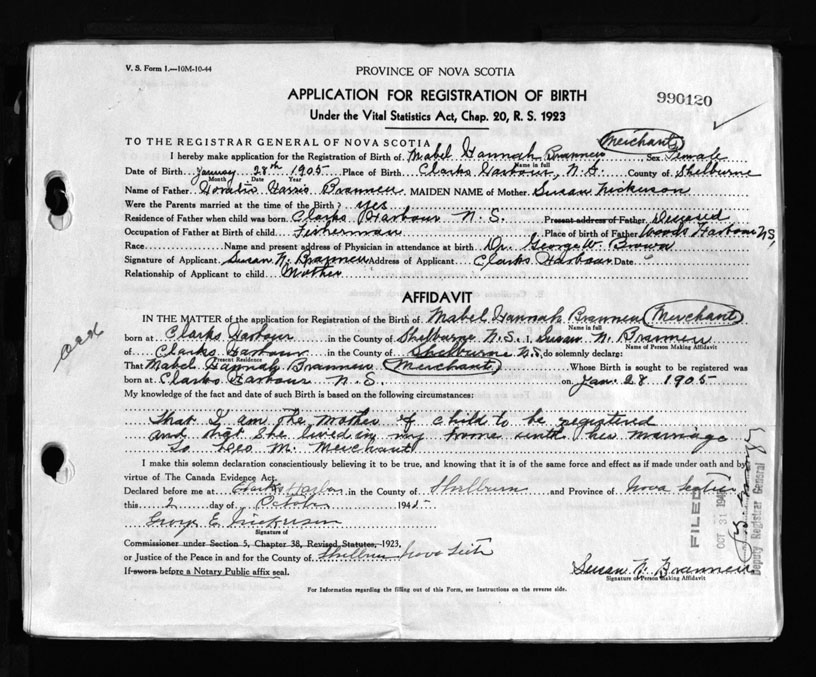 V. S. Form 1.—10M-10-44
PROVINCE OF NOVA SCOTIA
APPLICATION FOR REGISTRATION OF BIRTH
990120
Under the Vital Statistics Act, Chap. 20, R. S. 1923
TO THE REGISTRAR GENERAL OF NOVA SCOTIA
Merchant
I hereby make application for the Registration of Birth of Mabel Hannah Brannen, Sex Female
Name in full
Date of Birth January 28th 1905 Place of Birth Clarks Harbour, N.S. County of Shelburne
Month Date Year
Name of Father Harris Brannen MAIDEN NAME of Mother Susan Nickerson
Were the Parents married at the time of Birth? yes
Residence of Father when child was born Clarks Harbour N.S. Present address of Father Deceased
Occupation of Father at Birth of child Fisherman Place of birth of Father Woods Harbour N.S,
Race Name and present address of Physician in attendance at birth Dr. George W. Brown
Signature of Applicant Susan N. Brannen Address of Applicant Clarks Harbour Date
Relationship of Applicant to child Mother
AFFIDAVIT
IN THE MATTER of the application for Registration of the Birth of Mabel Hannah Brannen Merchant
Name in full
born at Clarks Harbour in the County of Shelburne N.S. I, Susan N. Brannen
Name of Person Making Affidavit
of Clarks Harbour in the County of Shelburne N.S. do solemnly declare:
Present Residence
That Mabel Hannah Brannen Merchant Whose Birth is sought to be registered was
born at Clarks Harbour N.S. on Jan. 28 1905
My knowledge of the fact and date of such Birth is based on the following circumstances:
That I am the mother of child to be registered
and that she lived in my home until her marriage
to Leo M. Merchant
I make this solemn declaration conscientiously believing it to be true, and knowing that it is of the same force and effect as if made under oath and by
virtue of The Canada Evidence Act.
Declared before me at Clarks Harbor in the County of Shelburne and Province of Nova Scotia
this 2 day of October 1945
George E Nickerson
Signature of
Commissioner under Section 5, Chapter 38, Revised Statutes, 1923,
or Justice of the Peace in and for the County of Shelburne Nova Scotia
If sworn before a Notary Public affix seal.
Susan N. Brannen
Signature of Person Making Affidavit
For Information regarding the filling out of this Form, see Instructions on the reverse side.
FILED
OCT 31
Deputy Registrar General